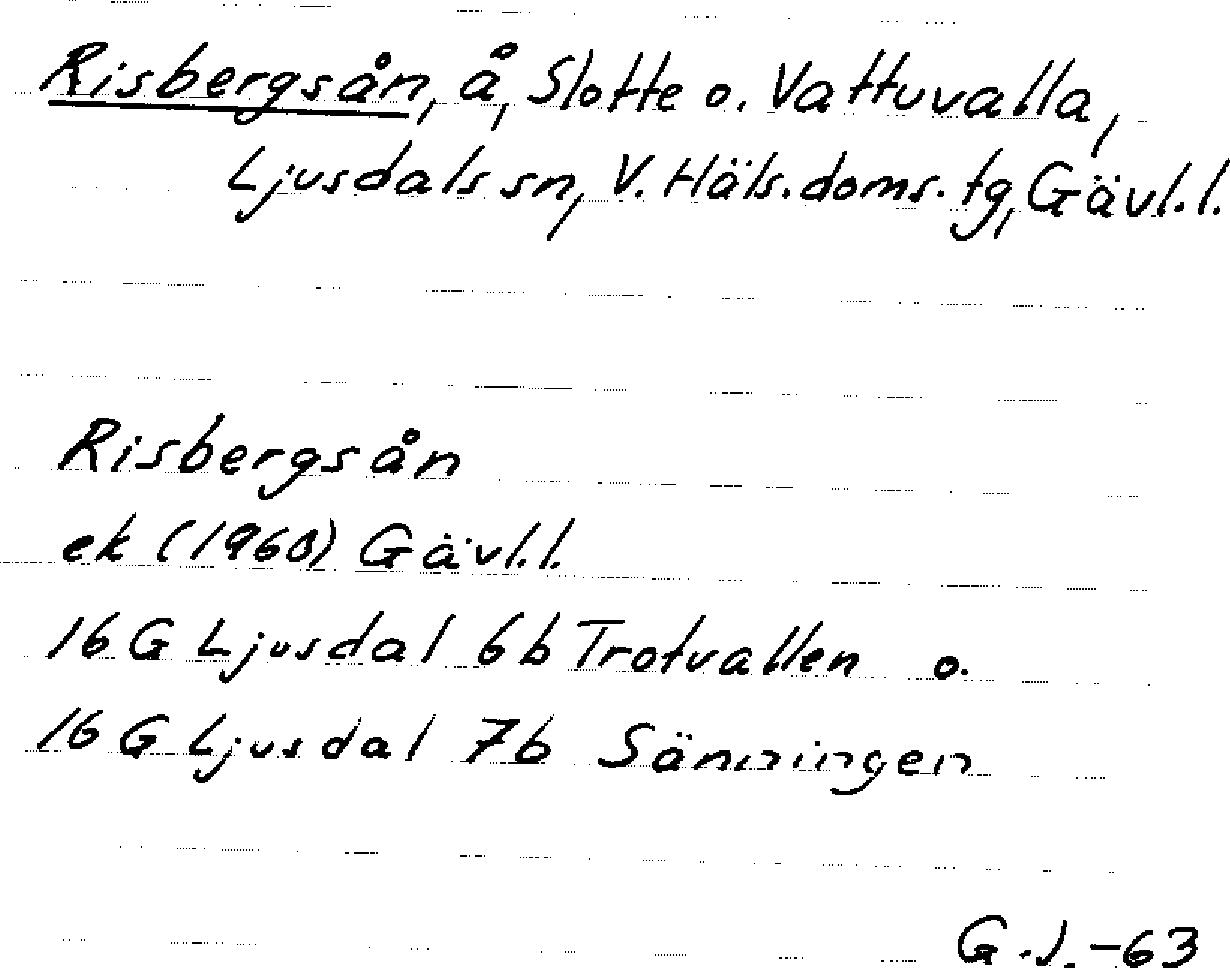 Risbergsån, å, Slotte o. Vattuvalla,
Ljusdals sn, V. Häls. doms. tg, Gävl.l.
Risbergsån
ek (1960) Gävl.l.
16 G Ljusdal 6b Trotvallen o.
16 G Ljusdal 7b Sänningen
G.J.-63